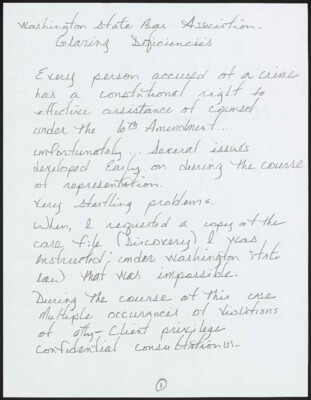 Washington State Bar Association.
Glaring Deficiencies
Every person accused of a crime
has a constitutional right to
effective assistance of counsel
under the 6th Amendment...
unfortunately... several issues
developed Early on during the course
of representation.
Very startling problems.
When, I requested a copy of the
case file (Discovery) I was
Instructed; under Washington State
law that was impossible.
During the course of this case
Multiple occurances of Violations
of atty-Client privilege
Confidential consultation
①